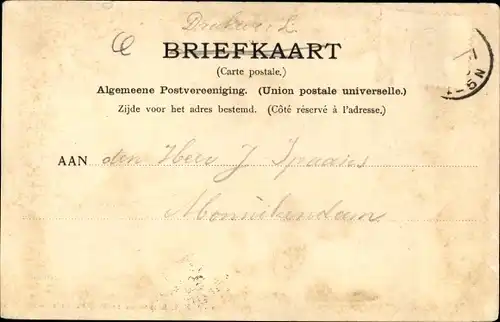 Drukwerk
BRIEFKAART
(Carte postale.)
Algemeene Postvereeniging. (Union postale universelle.)
Zijde voor het adres bestemd. (Côté réservé à l'adresse.)
AAN den Heer J Spaans
Monnikendam